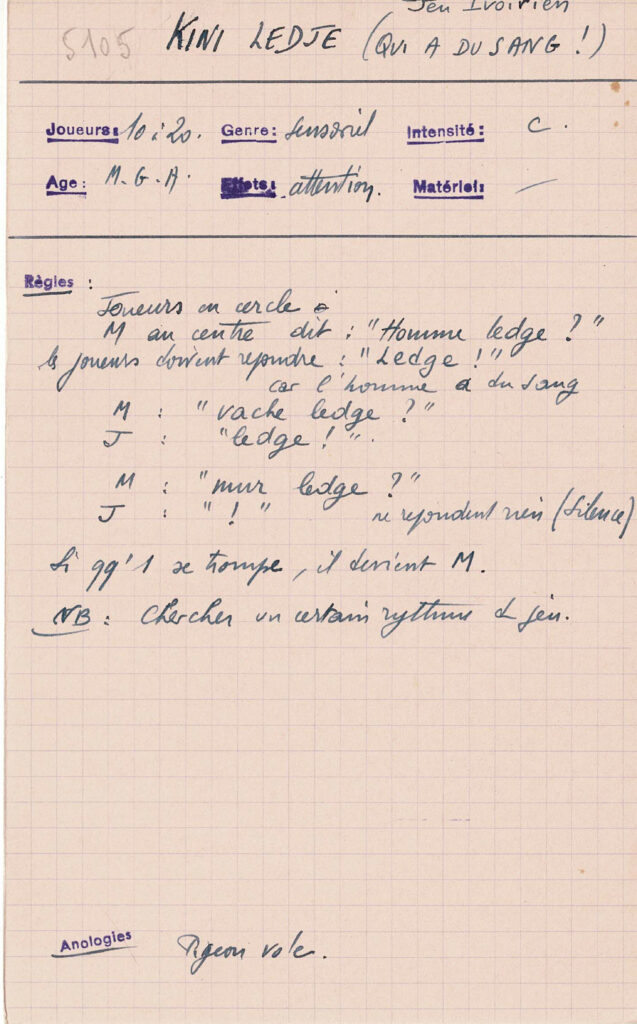 Jeu Ivoirien
5105 KINI LEDJE (QUI A DU SANG !)
Joueurs: 10 à 20. Genre: Sensoriel Intensité: C.
Age: M.G.A. Effets: attention. Matériel: —
Règles :
Joueurs en cercle
M au centre dit : "Homme ledge ?"
les joueurs doivent repondre : "Ledge !"
car l'homme a du sang
M : "vache ledge ?"
J : "ledge ! ".
M : "mur ledge ?"
J : " ! " ne repondent rien (Silence)
Si qq'1 se trompe, il devient M.
NB : Chercher un certain rythme de jeu.
Anologies Pigeon vole.